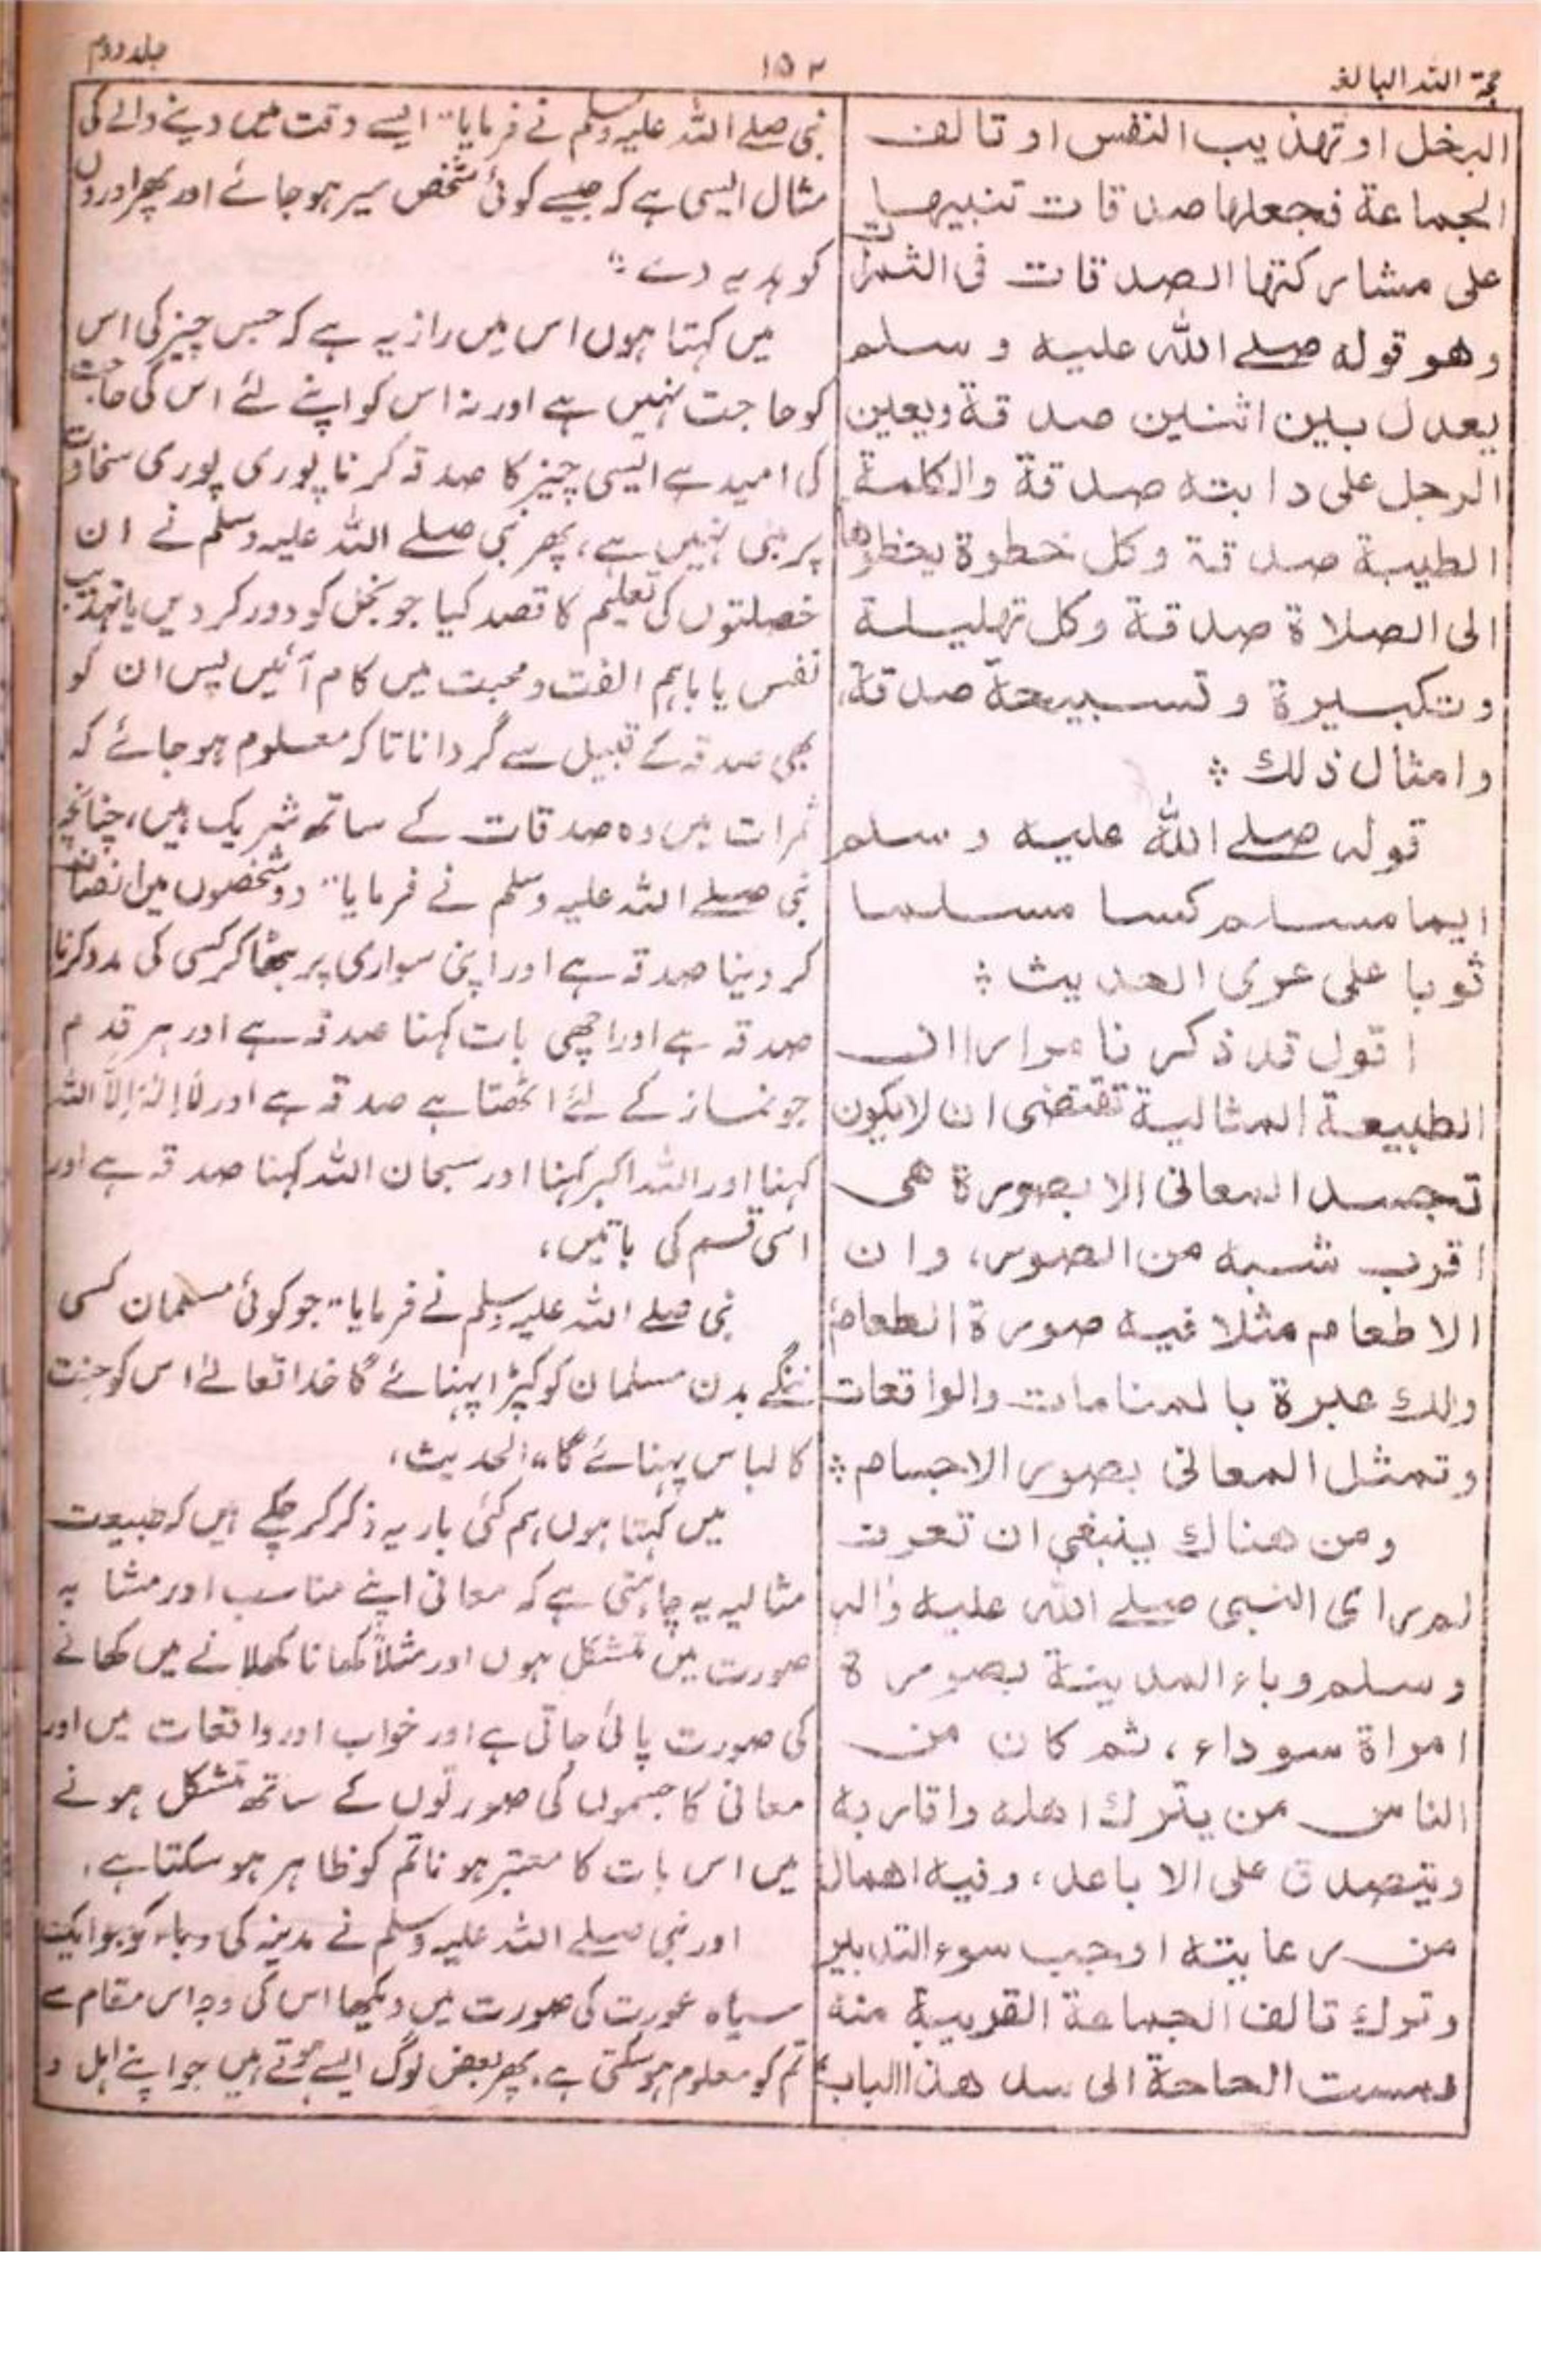 حجة اللہ البالغہ
۱۵۲
جلد دوم
البخل او تهذيب النفس او تالف
الجماعة فجعلها صدقات تنبيها
على مشاركتها الصدقات فى الثمرات
وهو قوله صلے اللہ عليه وسلم
يعدل بين اثنين صدقة ويعين
الرجل على دابته صدقة والكلمة
الطيبة صدقة وكل خطوة يخطوها
الى الصلاة صدقة وكل تهليلة
وتكبيرة وتسبيحة صدقة،
وامثال ذلك ؞
قوله صلے اللہ عليه وسلم
ايما مسلم كسا مسلما
ثوبا على عرى الحديث ؞
اقول قد ذكرنا مرارا ان
الطبيعة المثالية تقتضى ان لايكون
تجسد المعانى الا بصورة هى
اقرب شبه من الصور، وان
الاطعام مثلا فيه صورة الطعام
ولك عبرة بالمنامات والواقعات
وتمثل المعانى بصور الاجسام ؞
ومن هناك ينبغى ان تعرف
لم راى النبى صلے اللہ عليه واله
وسلم وباء المدينة بصورة
امراة سوداء، ثم كان من
الناس من يترك اهله واقاربه
ويتصدق على الاباعد، وفيه اهمال
من رعايته اوجب سوء التدبير
وترك تالف الجماعة القريبة منه
فمست الحاجة الى سد هذا الباب
نبی صلے اللہ علیہ وسلم نے فرمایا" ایسے وقت میں دینے والے کی
مثال ایسی ہے کہ جیسے کوئی شخص سیر ہو جائے اور پھر اوروں
کو ہدیہ دے"
میں کہتا ہوں اس میں راز یہ ہے کہ جس چیز کی اس
کو حاجت نہیں ہے اور نہ اس کو اپنے لئے اس کی حاجت
کی امید ہے ایسی چیز کا صدقہ کرنا پوری پوری سخاوت
پر مبنی نہیں ہے، پھر نبی صلے اللہ علیہ وسلم نے ان
خصلتوں کی تعلیم کا قصد کیا جو بخل کو دور کر دیں یا تہذیب
نفس یا باہم الفت و محبت میں کام آئیں پس ان کو
بھی صدقہ کے قبیل سے گردانا تاکہ معلوم ہو جائے کہ
ثمرات میں وہ صدقات کے ساتھ شریک ہیں، چنانچہ
نبی صلے اللہ علیہ وسلم نے فرمایا" دو شخصوں میں انصاف
کر دینا صدقہ ہے اور اپنی سواری پر بٹھا کر کسی کی مدد کرنا
صدقہ ہے اور اچھی بات کہنا صدقہ ہے اور ہر قدم
جو نماز کے لئے اٹھتا ہے صدقہ ہے اور لَا اِلٰہَ اِلَّا اللہ
کہنا اور اللہ اکبر کہنا اور سبحان اللہ کہنا صدقہ ہے اور
اسی قسم کی باتیں،
نبی صلے اللہ علیہ وسلم نے فرمایا" جو کوئی مسلمان کسی
ننگے بدن مسلمان کو کپڑا پہنائے گا خدا تعالےٰ اس کو جنت
کا لباس پہنائے گا" الحدیث،
میں کہتا ہوں ہم کئی بار یہ ذکر کر چکے ہیں کہ طبیعت
مثالیہ یہ چاہتی ہے کہ معانی اپنے مناسب اور مشابہ
صورت میں متشکل ہوں اور مثلاً کھانا کھلانے میں کھانے
کی صورت پائی جاتی ہے اور خواب اور واقعات میں اور
معانی کا جسموں کی صورتوں کے ساتھ متشکل ہونے
میں اس بات کا معتبر ہونا تم کو ظاہر ہو سکتا ہے،
اور نبی صلے اللہ علیہ وسلم نے مدینہ کی وباء کو جو ایک
سیاہ عورت کی صورت میں دیکھا اس کی وجہ اس مقام سے
تم کو معلوم ہو سکتی ہے، پھر بعض لوگ ایسے ہوتے ہیں جو اپنے اہل و